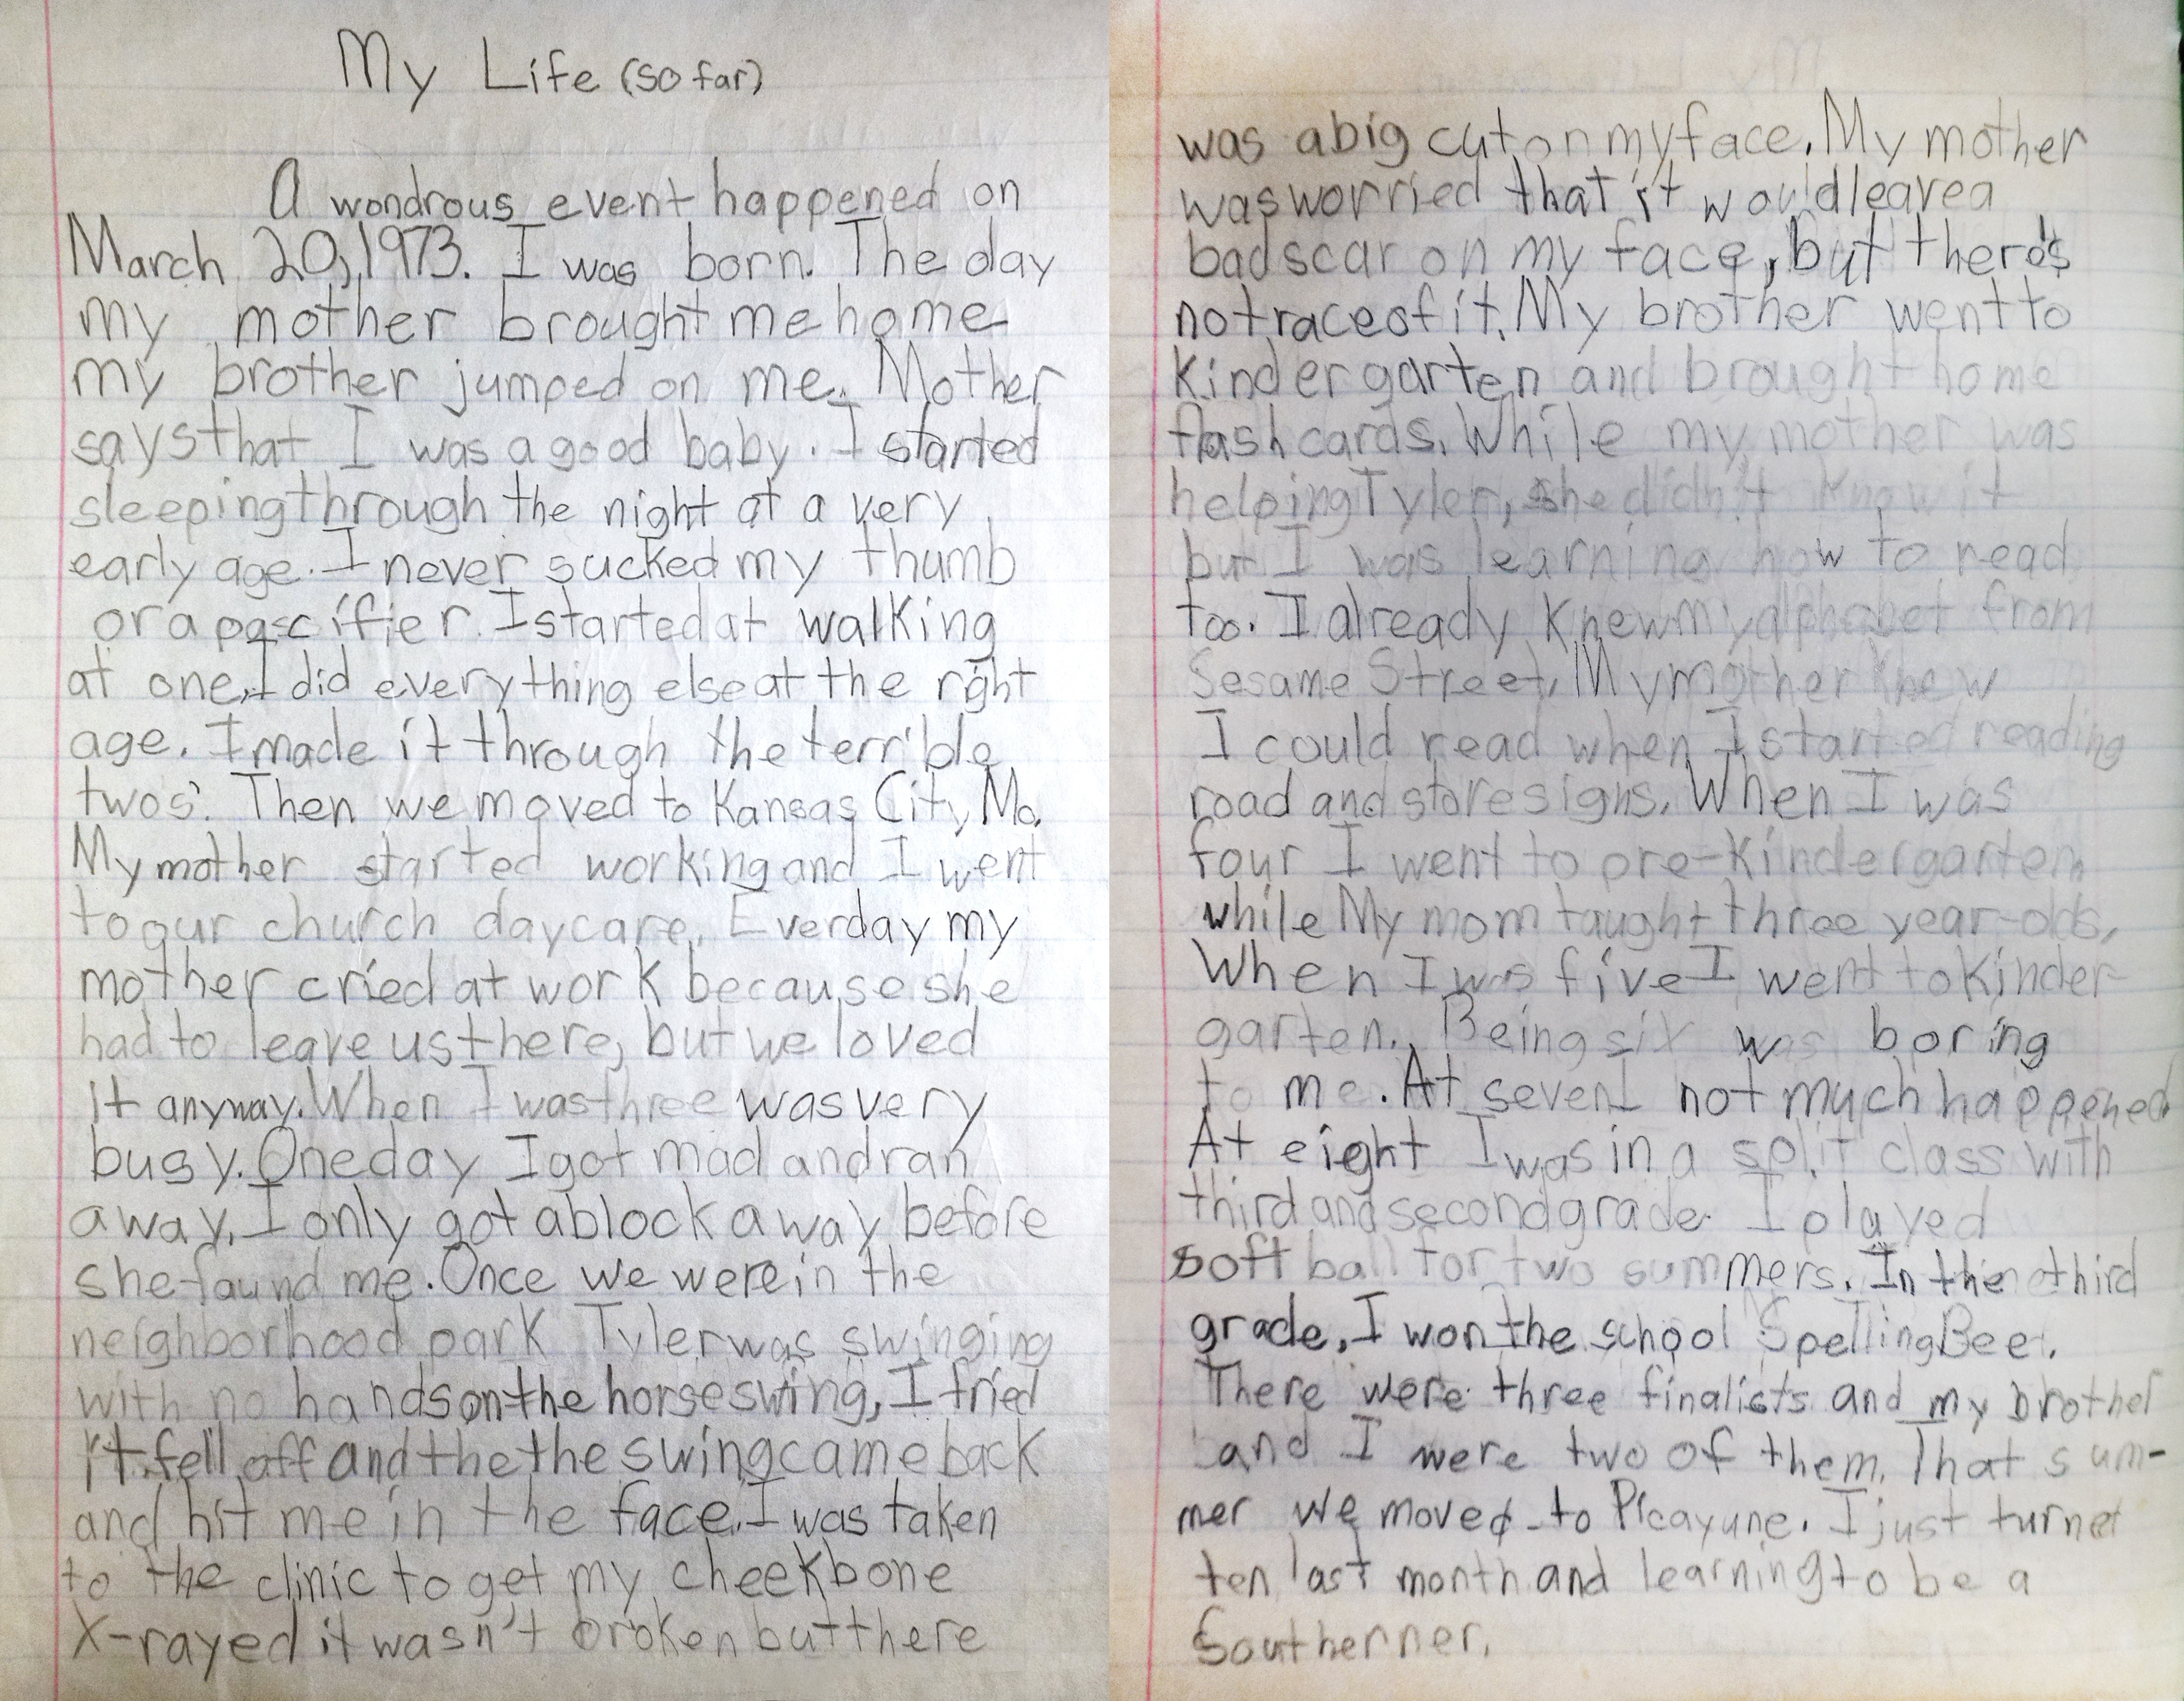 My Life (so far)
A wondrous event happened on
March 20, 1973. I was born. The day
my mother brought me home
my brother jumped on me. Mother
says that I was a good baby. I started
sleeping through the night at a very
early age. I never sucked my thumb
or a pascifier. I started at walking
at one, I did everything else at the right
age. I made it through the terrible
twos'. Then we moved to Kansas City, Mo.
My mother started working and I went
to our church daycare. Everday my
mother cried at work because she
had to leave us there, but we loved
it anyway. When I was three was very
busy. One day I got mad and ran
away. I only got a block away before
she found me. Once we were in the
neighborhood park Tyler was swinging
with no hands on the horse swing, I tried
it fell off and the the swing came back
and hit me in the face. I was taken
to the clinic to get my cheekbone
X-rayed it wasn't broken but there
was a big cut on my face. My mother
was worried that it would leave a
bad scar on my face, but there's
no trace of it. My brother went to
Kindergarten and brought home
flash cards. While my mother was
helping Tyler, she didn't know it
but I was learning how to read
too. I already knew my alphabet from
Sesame Street. My mother knew
I could read when I started reading
road and store signs. When I was
four I went to pre-Kindergarten
while My mom taught three year-olds.
When I was five I went to Kinder-
garten. Being six was boring
to me. At seven I not much happened
At eight I was in a split class with
third and second grade. I played
soft ball for two summers. In the third
grade, I won the school Spelling Bee.
There were three finalists and my brother
and I were two of them. That sum-
mer we moved to Picayune. I just turned
ten last month and learning to be a
Southerner.